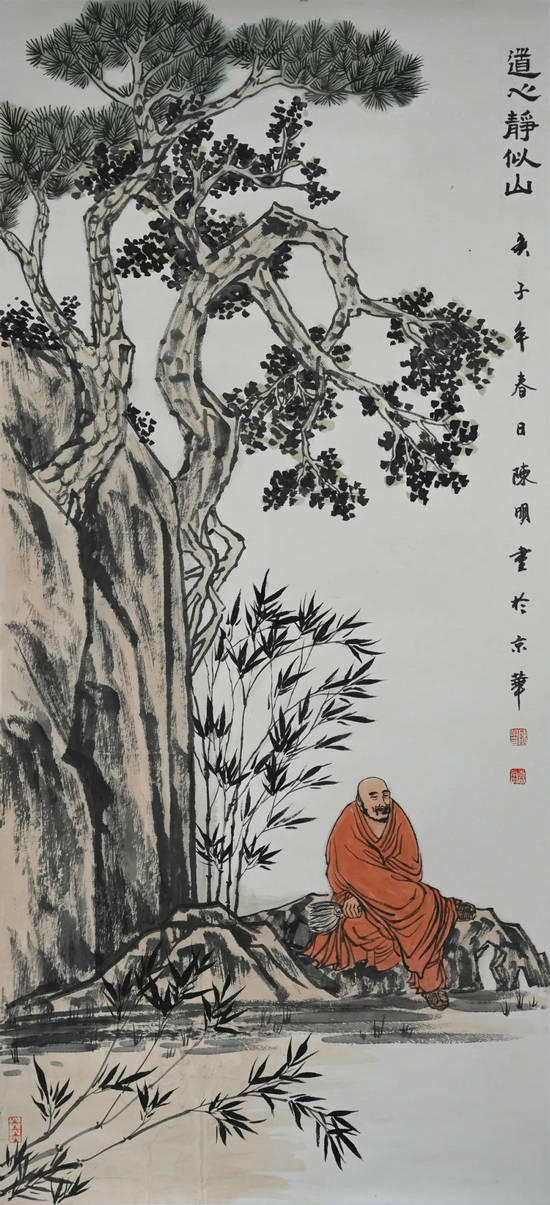 道心静似山
庚子年春日陳明畫於京華